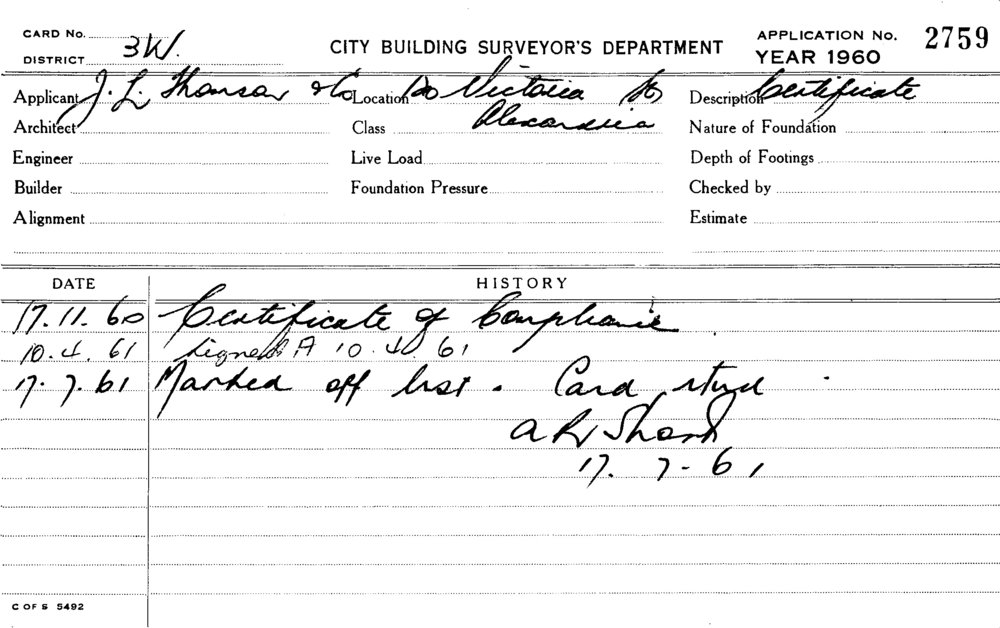 CARD No.
DISTRICT 3W.
CITY BUILDING SURVEYOR'S DEPARTMENT
APPLICATION No. 2759
YEAR 1960
Applicant J. L. & Co Location Victoria Description Certificate
Architect Class Alexandria Nature of Foundation
Engineer Live Load Depth of Footings
Builder Foundation Pressure Checked by
Alignment Estimate
DATE HISTORY
17.11.60 Certificate of Compliance
10.4.61 Signed 10.4.61
17.7.61 Marked off list. Card
17.7-61
C OF S 5492